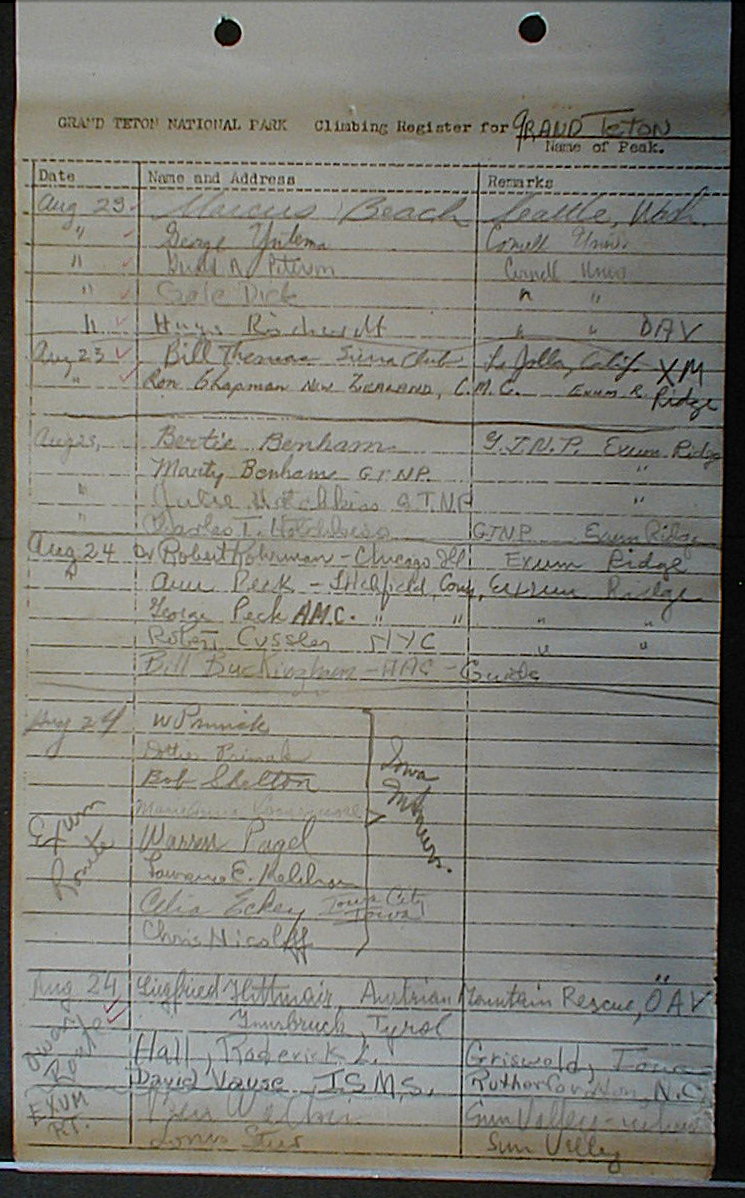 GRAND TETON NATIONAL PARK Climbing Register for GRAND TETON
Name of Peak.
Date Name and Address Remarks
Aug 23 Marcus Beach Seattle, Wash.
" George Cornell Univ.
" Cornell Univ
" Gale Dick " "
" " " ÖAV
Aug 23 Bill Thomas Sierra Club La Jolla, Calif. XM
" Ron Chapman NEW ZEALAND, C.M.C. EXUM R. Ridge
Aug 23, Bertie Benham G.T.N.P. Exum Ridge
Marty Benham G.T.N.P. "
" Julie Hotchkiss G.T.N.P. "
" Charles T. Hotchkiss G.T.N.P. Exum Ridge
Aug 24 Dr Robert Rohrman - Chicago Ill Exum Ridge
" Ann Peck - Litchfield, Conn, Exum Ridge
George Peck A.M.C. " " " "
Robert Cussler NYC " "
Bill Buckingham - AAC - Guide
Aug 24 W Primick
Bob Shelton
Iowa
Exum Route
Warren Pagel
E.
Celia Eckey Iowa City Iowa
Chris Nicoloff
Aug 24 Siegfried Hittmair, Austrian Mountain Rescue, ÖAV
Innsbruck, Tyrol
Owen Route
Hall, Roderick L. Griswold, Iowa
David Vause, I.S.M.S. N.C.
EXUM RT.
Sun Valley -
Sun Valley